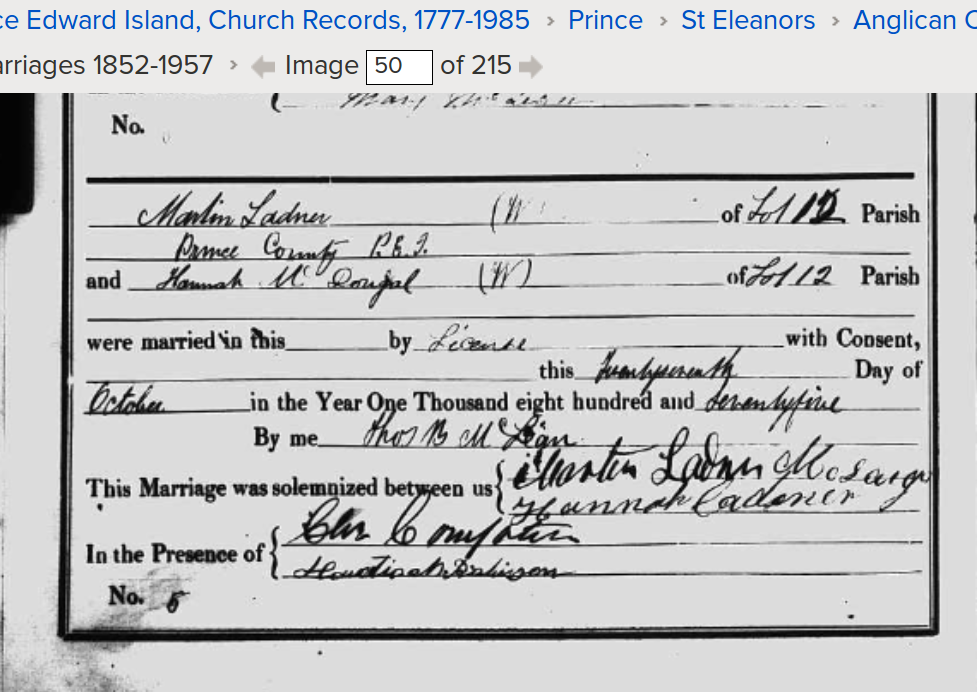 ce Edward Island, Church Records, 1777-1985 › Prince › St Eleanors › Anglican C
arriages 1852-1957 › Image 50 of 215
No.
Martin Ladner (W of Lot 12 Parish
Prince County P.E.I.
and Hannah Mc Dougal (W) of Lot 12 Parish
were married in this by License with Consent,
this Twentyseventh Day of
October in the Year One Thousand eight hundred and seventyfive
By me Thos B McLean
This Marriage was solemnized between us { Martin Ladner
Hannah Ladner
In the Presence of {
No. 5